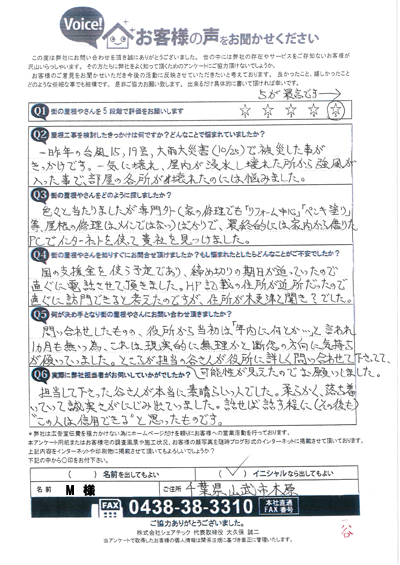 Voice!
お客様の声をお聞かせください
この度は弊社にお問い合わせを頂き誠にありがとうございました。世の中には弊社の存在やサービスをご存知ないお客様が
沢山いらっしゃいます。その方たちに弊社をよく知って頂くためのアンケートにご協力頂けないでしょうか。
お客様のご意見をお聞かせいただき今後の活動に反映させていただきたいと考えております。良かったこと、嬉しかったこと
どのような些細な事でも結構です。是非ご協力お願い致します。出来るだけ具体的に書いて頂ければ幸いです。
5が最高です→
Q1 街の屋根やさんを5段階で評価をお願いします ☆ ☆ ☆ ☆ ☆
Q2 屋根工事を検討したきっかけは何ですか?どんなことで悩まれていましたか?
一昨年の台風15,19号,大雨大災害(10/25)で被災した事が
きっかけです。一気に壊れ、屋内が浸水し壊れた所から強風が
入った事で、部屋の各所が壊れたのには悩みました。
Q3 街の屋根やさんをどのように探しましたか?
色々と当たりましたが専門外(家の修理でも「リフォーム中心」「ペンキ塗り」
等、屋根の修理はメインではない)ばかりで、最終的には家内から借りた
PCでインターネットを使て貴社を見つけました。
Q4 街の屋根やさんを知りすぐにお問合せ頂けましたか?もし悩まれたとしたらどんなことが不安でしたか?
国の支援金を使う予定であり、締め切りの期日が迫っていたので
直ぐに電話させて頂きました。HP記載の住所が近所だったので
直ぐに訪問できると考えたのですが、住所が木更津と聞き?でした。
Q5 何が決め手となり街の屋根やさんにお問い合わせ頂きましたか?
問い合せしたものの、役所から当初は「年内に何とか…」と言われ
1カ月も無い為、これは現実的に無理かと断念の方向に気持ち
が傾いていました。ところが担当の谷さんが役所に詳しく問い合わせて下さって、
可能性が見えたのでお願いしました。
Q6 実際に弊社担当者がお伺いしていかがでしたか?
担当して下さった谷さんが本当に素晴らしい人でした。柔らかく、落ち着
いていて誠実さがにじみ出ていました。話せば話す程に(その後も)
"この人は信用できる"と思ったものです。
*弊社は広告宣伝費を極力かけない為にホームページだけを頼りにお客様への営業活動を行っております。
本アンケート用紙またはお客様宅の調査風景や施工状況、お客様の顔写真を随時ブログ形式のインターネットに掲載させて頂いております。
上記内容をインターネットや印刷物に掲載させて頂いてもよろしいでしょうか?
下記の中から〇印をお付下さい。
( )名前を出してもよい (✓)イニシャルなら出してもよい
名前 M 様 ご住所 千葉県山武市木原
FAX 0438-38-3310 本社直通 FAX番号
谷
ご協力ありがとうございました。
株式会社シェアテック 代表取締役 大久保 誠二
当アンケートで取得したお客様の個人情報は関係法規に基づき厳正に管理いたします。